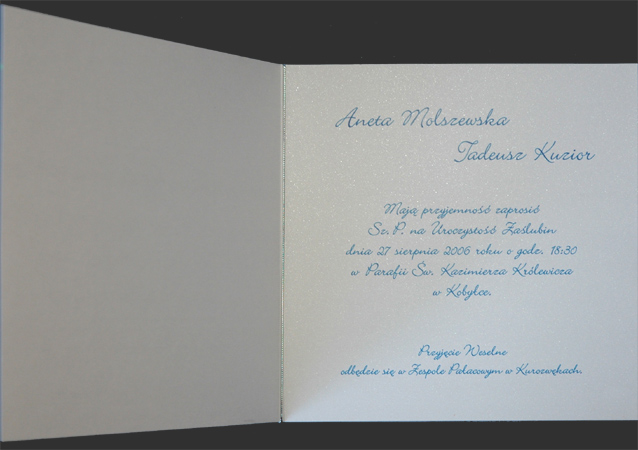 Aneta Molszewska
Tadeusz Kuzior
Mają przyjemność zaprosić
Sz. P. na Uroczystość Zaślubin
dnia 27 sierpnia 2006 roku o godz. 18:30
w Parafii Św. Kazimierza Królewicza
w Kobyłce.
Przyjęcie Weselne
odbędzie się w Zespole Pałacowym w Kurozwękach.